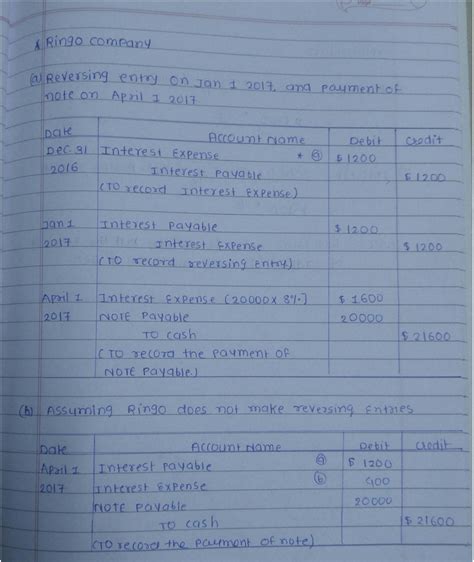 * Ringo company
(a) Reversing entry on Jan 1 2017, and payment of
note on April 1 2017
Date Account Name Debit Credit
Dec 31 Interest Expense * (a) $ 1200
2016 Interest Payable $ 1200
(To record Interest Expense)
Jan 1 Interest Payable $ 1200
2017 Interest Expense $ 1200
(To record reversing entry)
April 1 Interest Expense (20000 x 8%) $ 1600
2017 Note Payable 20000
To cash $ 21600
(To record the payment of
Note Payable.)
(b) Assuming Ringo does not make reversing Entries
Date Account Name Debit Credit
April 1 Interest Payable (a) $ 1200
2017 Interest Expense (b) 400
Note Payable 20000
To cash $ 21600
(To record the payment of note)